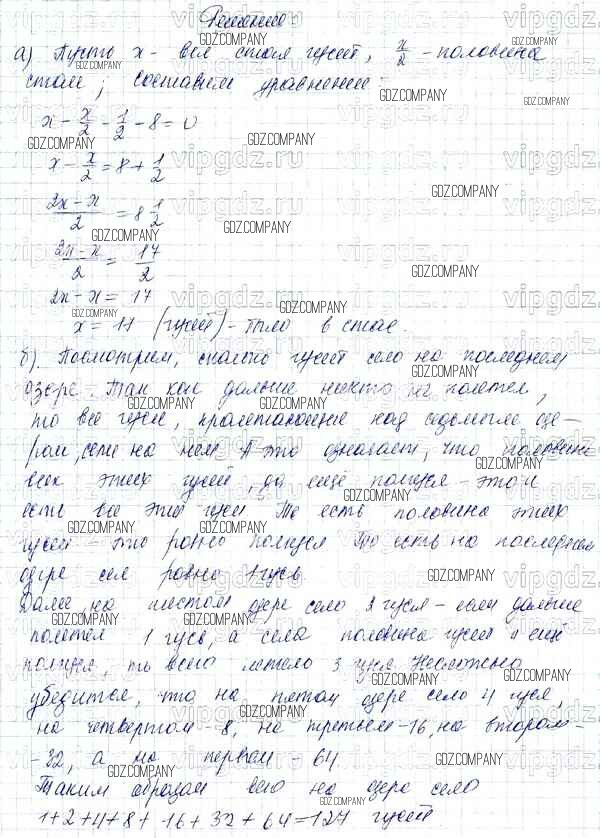 Решение
а) Пусть x - вся стая гусей, x/2 - половина
стаи; составим уравнение:
x - x/2 - 1/2 - 8 = 0
x - x/2 = 8 + 1/2
2x - x/2 = 8 1/2
2x - x/2 = 17/2
2x - x = 17
x = 17 (гусей) - было в стае.
б). Посмотрим, сколько гусей село на последнем
озере. Так как дальше никто не полетел,
то все гуси, пролетавшие над седьмым озе-
ром, сели на нем. А это означает, что половина
всех этих гусей, да ещё полгуся - это и
есть все эти гуси. То есть половина этих
гусей - это ровно полгуся. То есть на последнем
озере сел ровно 1 гусь.
Далее, на шестом озере село 2 гуся - если дальше
полетел 1 гусь, а села половина гусей и ещё
полгуся, то всего летело 3 гуся. Несложно
убедиться, что на пятом озере село 4 гуся,
на четвертом - 8, на третьем - 16, на втором -
- 32, а на первом - 64.
Таким образом всего на озере село
1+2+4+8+16+32+64=127 гусей